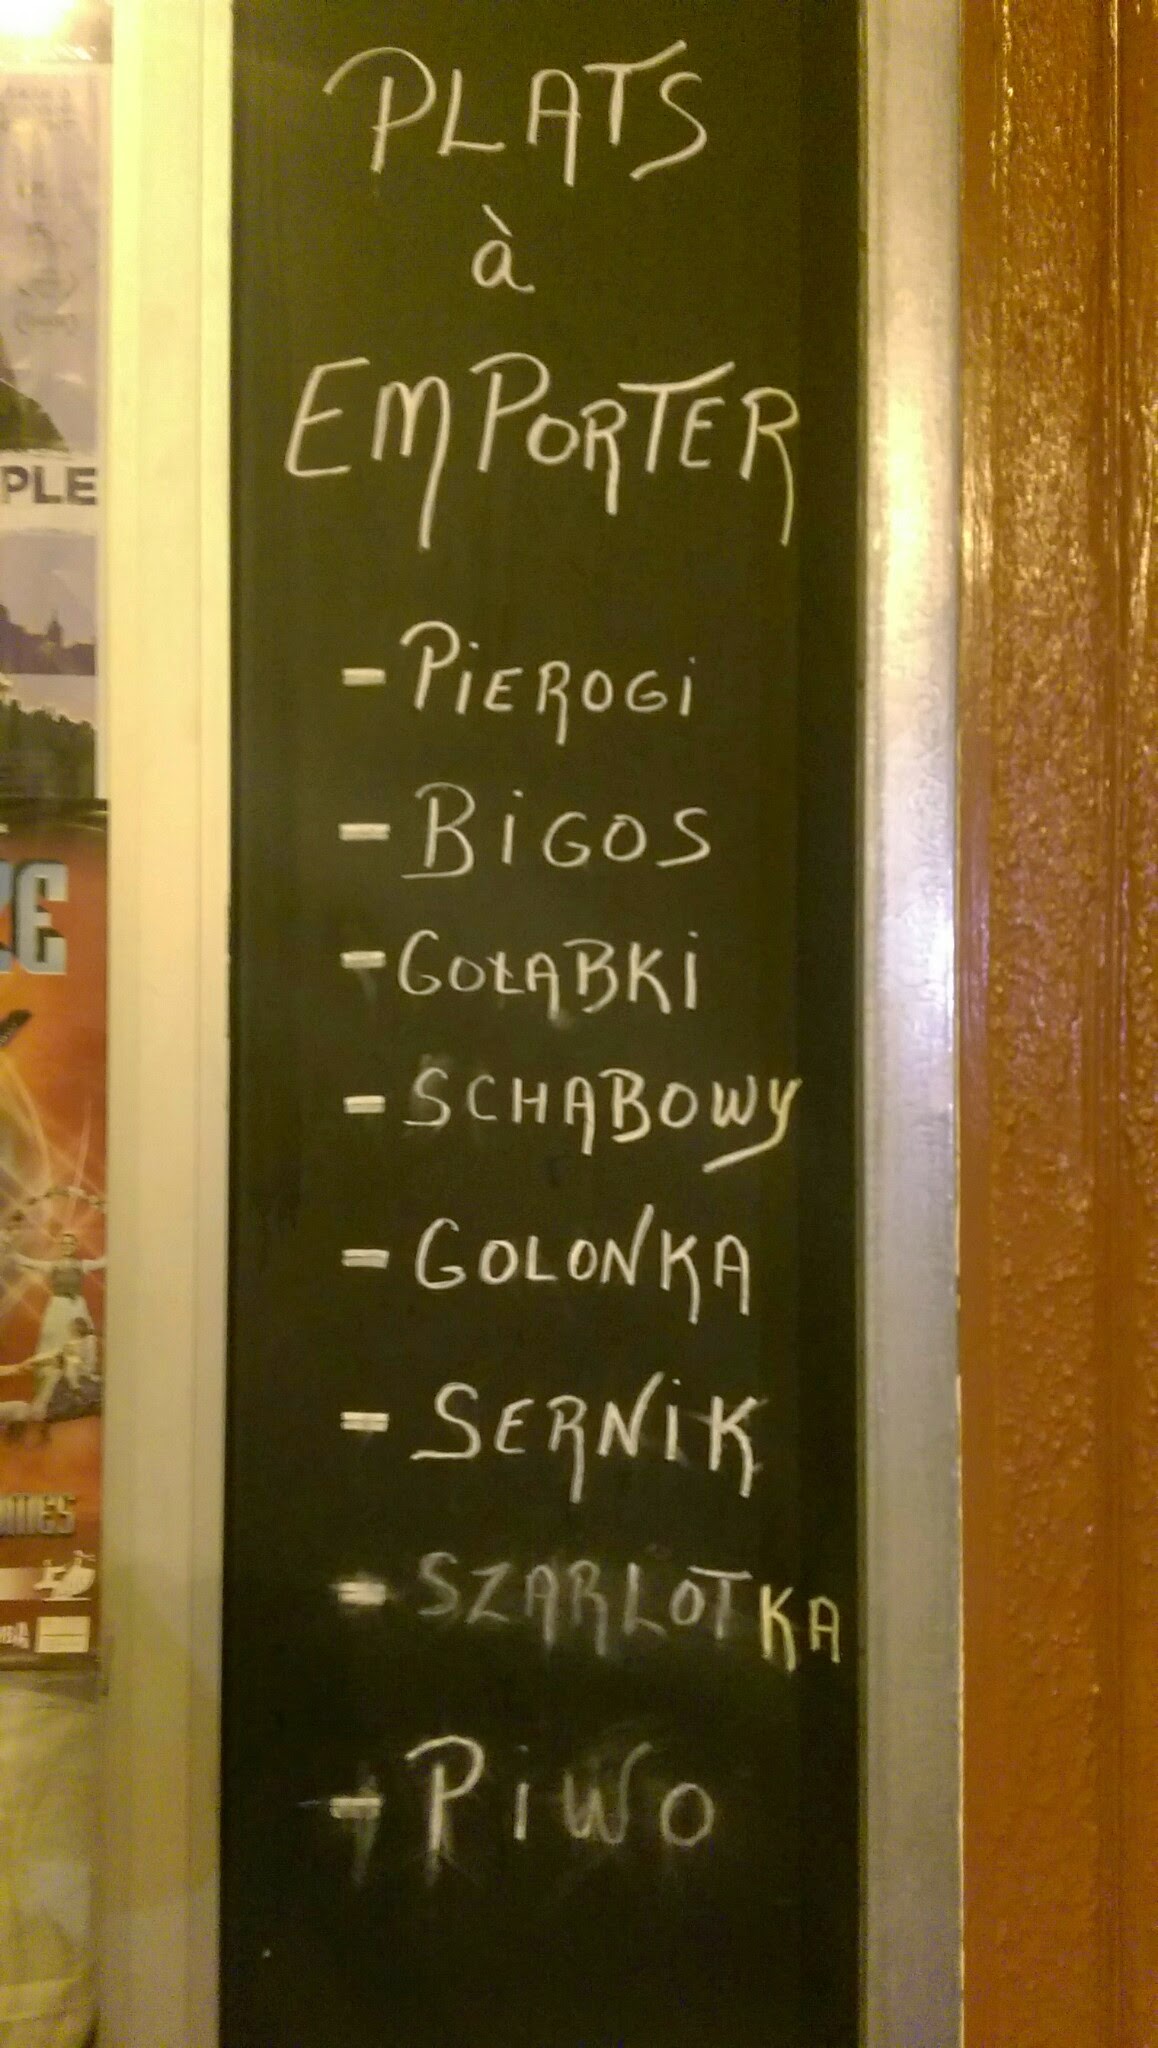 PLATS
à
EMPORTER
- PiEROGi
- BiGOS
- GOŁABKi
- SCHABOWY
- GOLONKA
- SERNiK
- SZARLOTKA
- PiWO
PLE